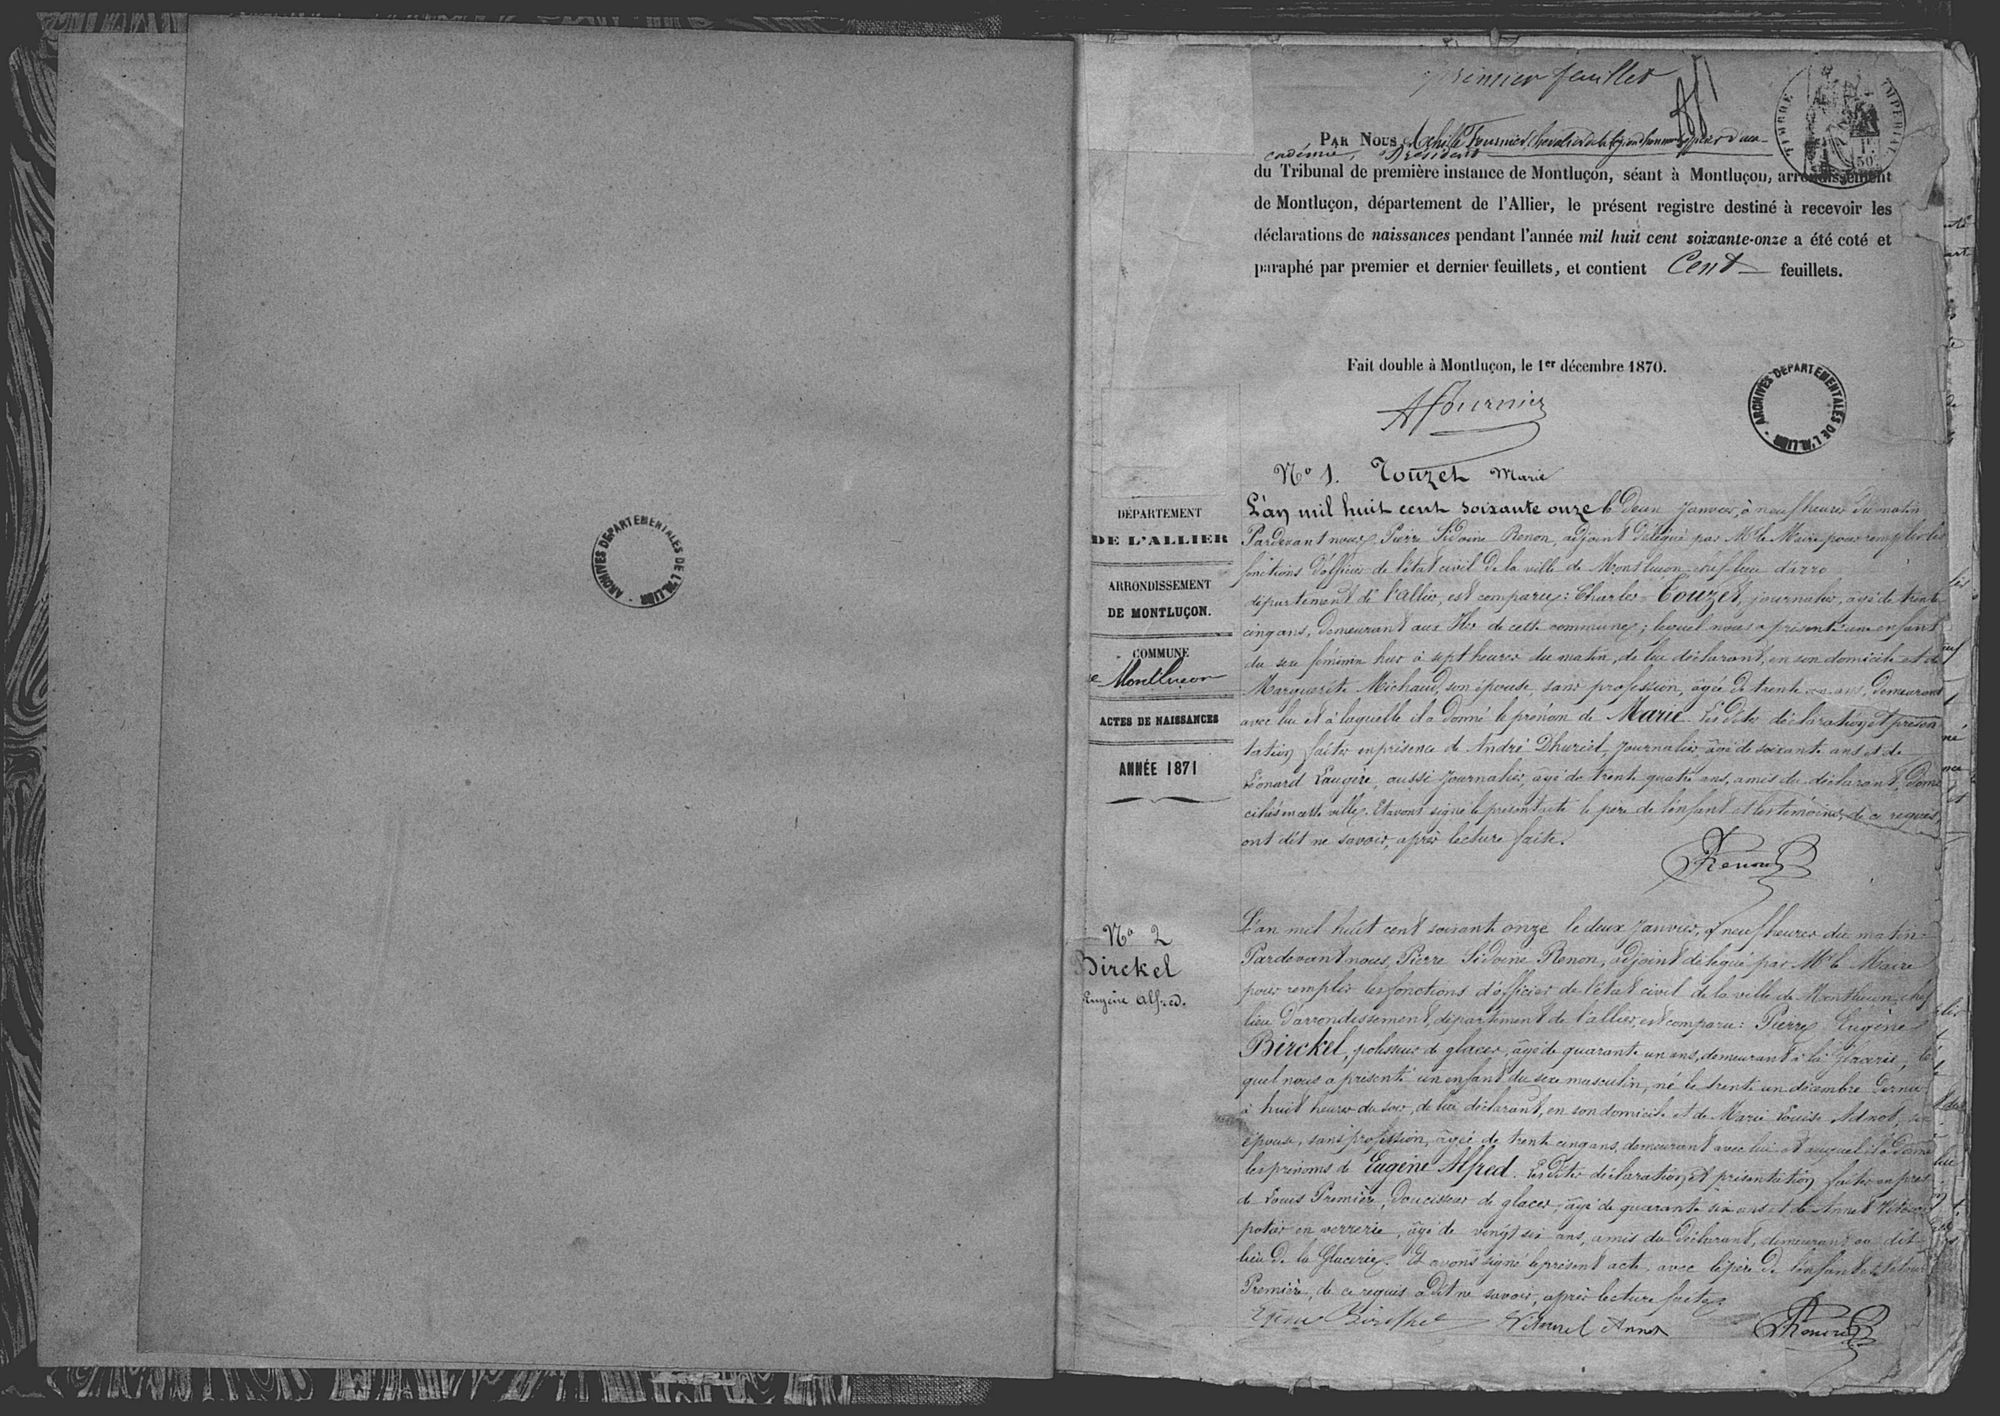 Premier feuillet
TIMBRE IMPÉRIAL
50
PAR NOUS Achille Fournier Chevalier de la légion d'honneur officier d'aca
cadémie, Président
du Tribunal de première instance de Montluçon, séant à Montluçon, arrondissement
de Montluçon, département de l'Allier, le présent registre destiné à recevoir les
déclarations de naissances pendant l'année mil huit cent soixante-onze a été coté et
paraphé par premier et dernier feuillets, et contient Cent feuillets.
Fait double à Montluçon, le 1er décembre 1870.
AFournier
ARCHIVES DEPARTEMENTALES DE L'ALLIER
ARCHIVES DEPARTEMENTALES DE L'ALLIER
DÉPARTEMENT
DE L'ALLIER
ARRONDISSEMENT
DE MONTLUÇON.
COMMUNE
de Montluçon
ACTES DE NAISSANCES
ANNÉE 1871
No 1. Touzet Marie
L'an mil huit cent soixante onze le deux Janvier, à neuf heures du matin
Pardevant nous, Pierre Sidoine Renon, adjoint délégué par Mr le Maire pour remplir les
fonctions d'officier de l'état civil de la ville de Montluçon chef lieu d'arro
département de l'allier, est comparu: Charles Touzet, journalier, âgé de trente
cinq ans, demeurant aux Iles de cette commune; lequel nous a présenté une enfant
du sexe féminin hier à sept heures du matin, de lui déclarant, en son domicile et de
Marguerite Michaud, son épouse, sans profession, âgée de trente ans, demeurant
avec lui et à laquelle il a donné le prénom de Marie. Les dites déclaration et présen
tation faites en présence de André Dhuriel, Journalier âgé de soixante ans et de
Léonard Laugère, aussi Journalier, âgé de trente quatre ans, amis du déclarant, domi
ciliés en cette ville. Et avons signé le présent acte le père de l'enfant et les témoins, de ce requis,
ont dit ne savoir, après lecture faite.
Renon
No 2
Birckel
Eugène Alfred.
L'an mil huit cent soixante onze le deux Janvier, à neuf heures du matin
Pardevant nous, Pierre Sidoine Renon, adjoint délégué par Mr le Maire
pour remplir les fonctions d'officier de l'état civil de la ville de Montluçon, chef
lieu d'arrondissement, département de l'allier, est comparu: Pierre Eugène
Birckel, polisseur de glaces, âgé de quarante un ans, demeurant à la Glacerie, le
quel nous a présenté un enfant du sexe masculin, né le trente un décembre dernier
à huit heures du soir, de lui déclarant, en son domicile et de Marie Louise Adnot, son
épouse, sans profession, âgée de trente cinq ans, demeurant avec lui et auquel il a donné
les prénoms de Eugène Alfred. Les dites déclaration et présentation faites en prés
de Louis Première, doucisseur de glaces, âgé de quarante six ans et de Annet
potier en verrerie, âgé de vingt six ans, amis du déclarant, demeurant au dit
lieu de la Glacerie. Et avons signé le présent acte, avec le père de l'enfant
Première, de ce requis a dit ne savoir, après lecture faite.
Birckel Annet
Renon